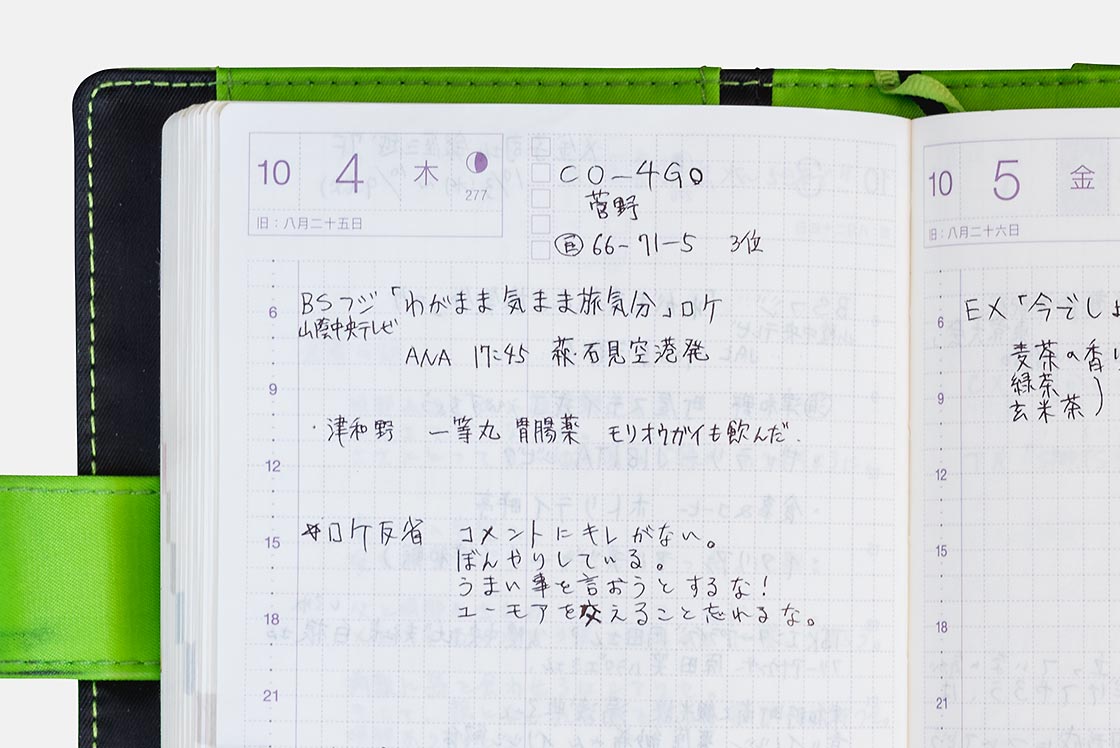 10 4 木
277
旧：八月二十五日
CO-4GO
菅野
66-71-5 3位
6
BSフジ「わがまま気まま旅気分」ロケ
山陰中央テレビ
ANA 17:45 萩・石見空港発
9
・津和野 一等丸 胃腸薬 モリオウガイも飲んだ.
12
15
*ロケ反省 コメントにキレがない。
ぼんやりしている。
うまい事を言おうとするな！
ユーモアを交えること忘れるな。
18
21
10 5 金
旧：八月二十六日
6
EX「今でしょ
麦茶の香り
緑茶
9
玄米茶）
12
15
18
21